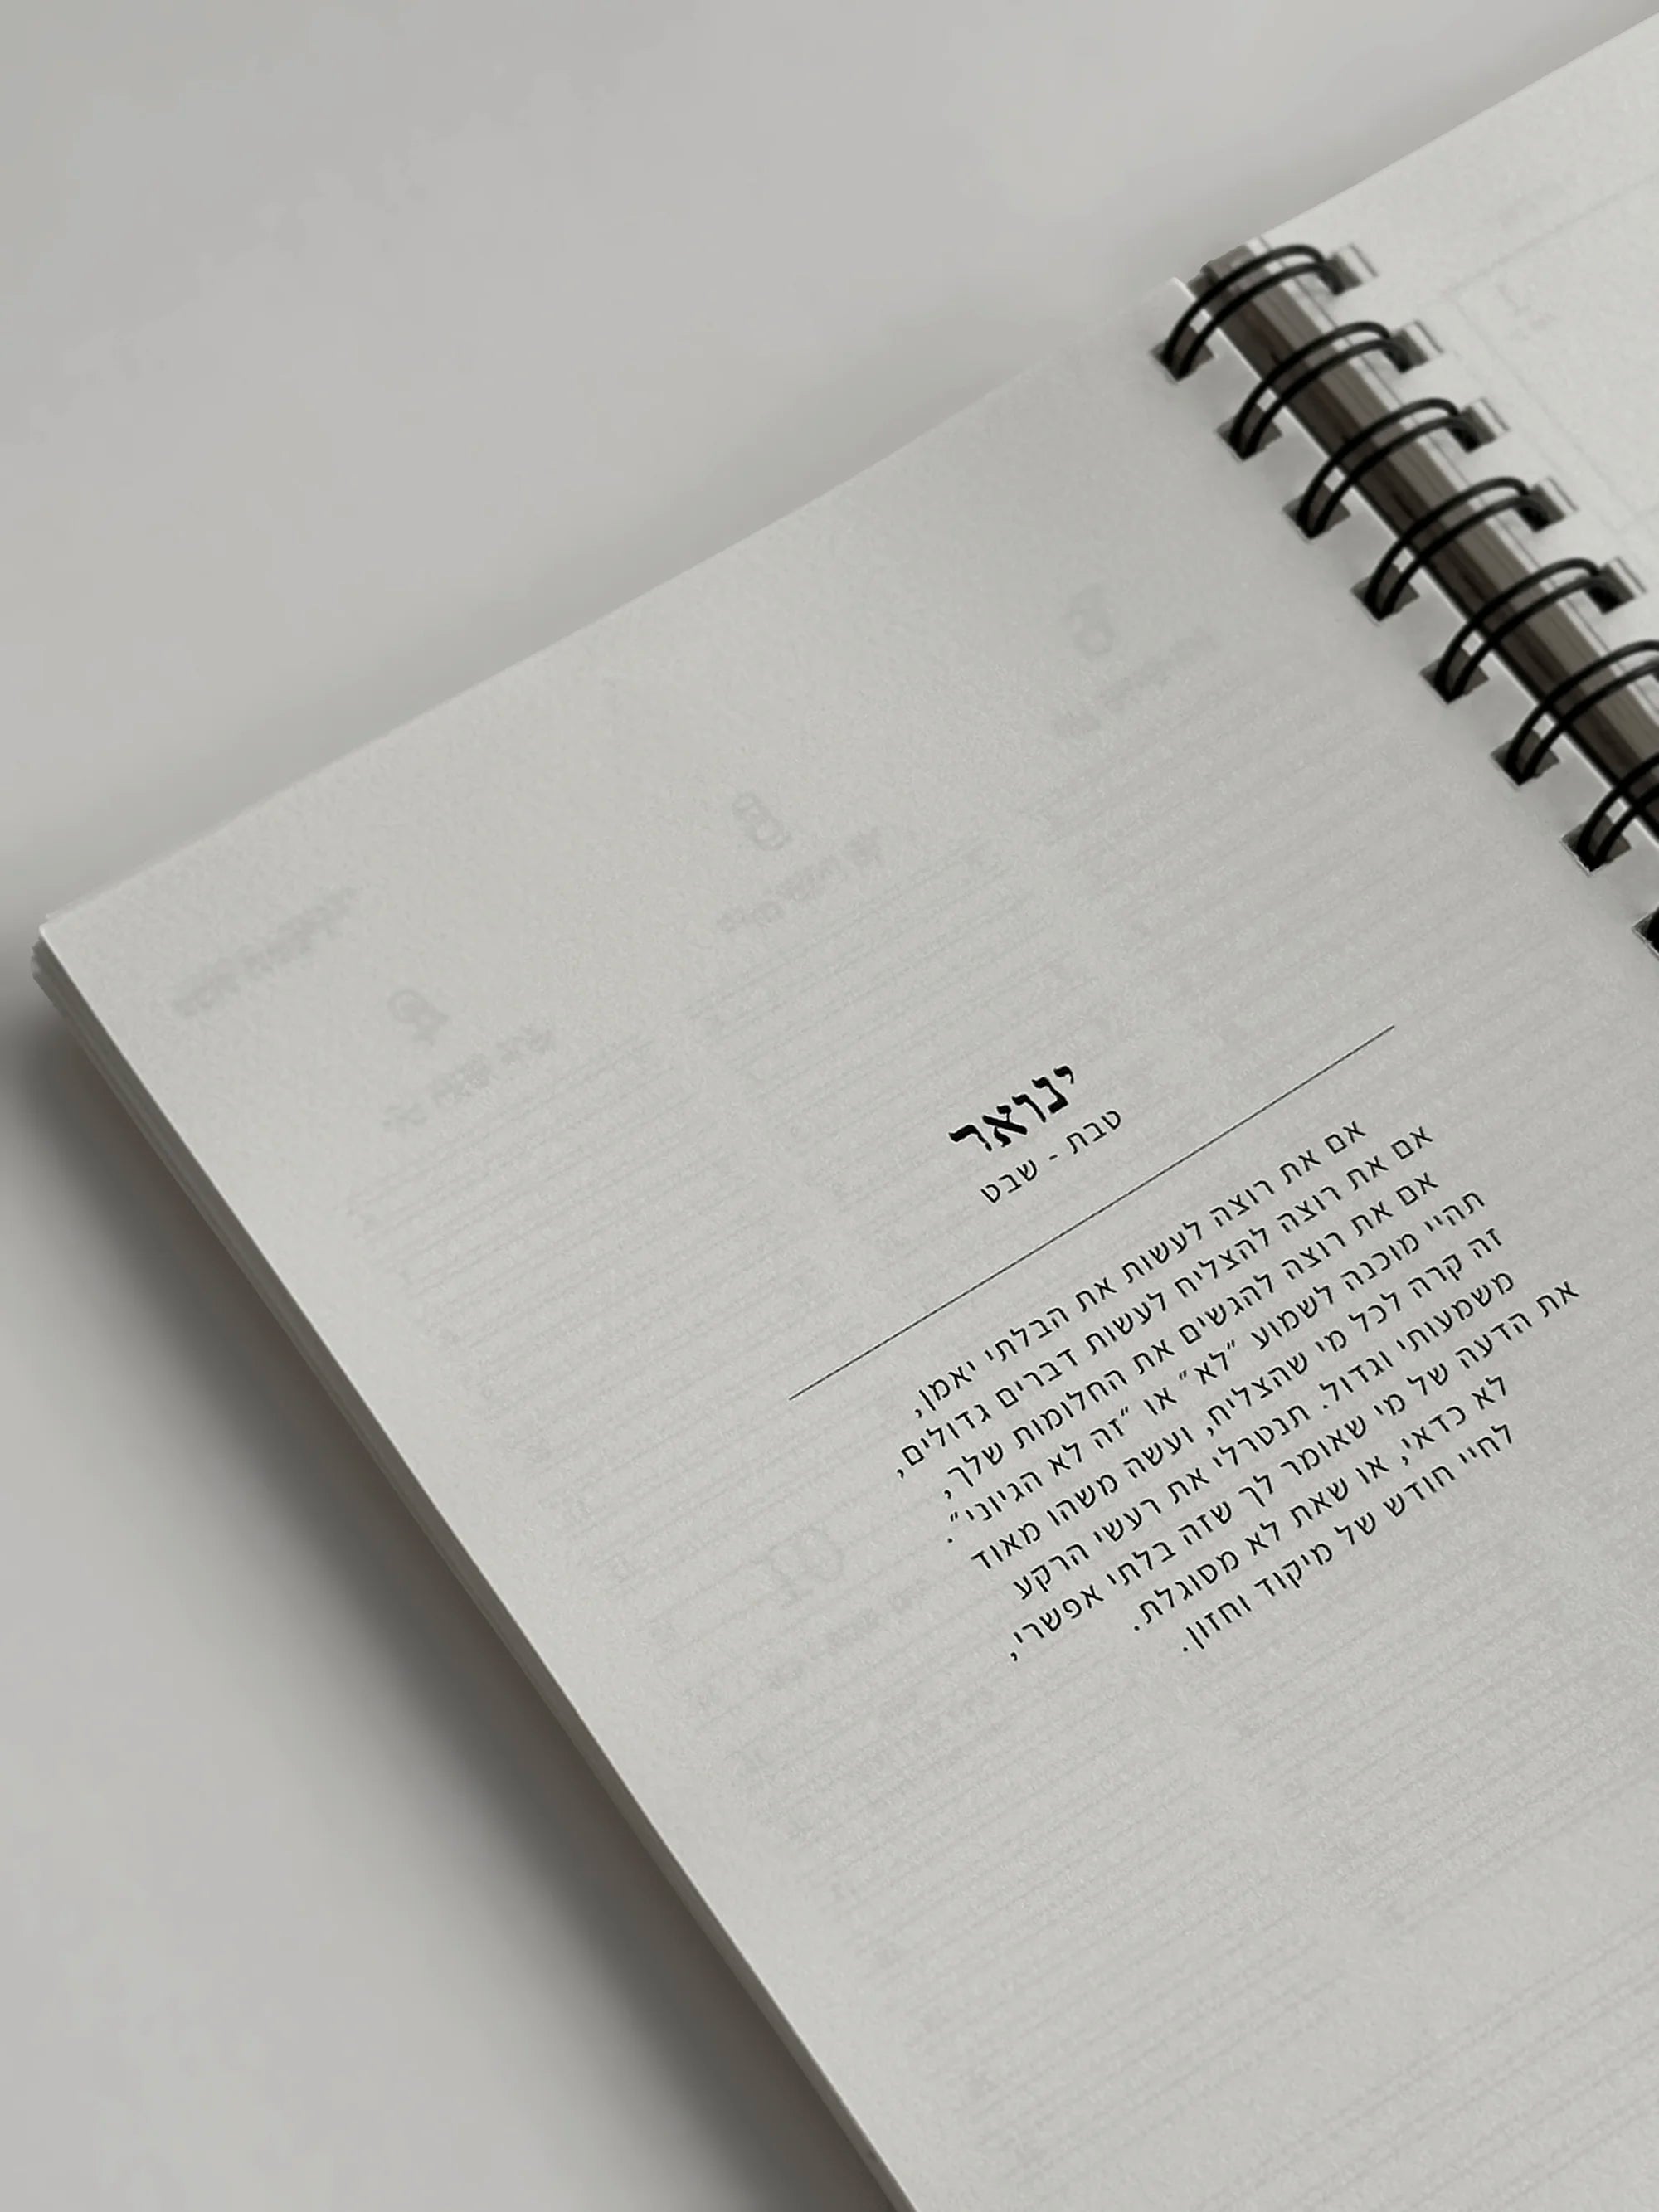 ינואר
טבת - שבט
אם את רוצה לעשות את הבלתי יאמן,
אם את רוצה להצליח לעשות דברים גדולים,
אם את רוצה להגשים את החלומות שלך,
תהיי מוכנה לשמוע ״לא״ או ״זה לא הגיוני״.
זה קרה לכל מי שהצליח, ועשה משהו מאוד
משמעותי וגדול. תנטרלי את רעשי הרקע
את הדעה של מי שאומר לך שזה בלתי אפשרי,
לא כדאי, או שאת לא מסוגלת.
לחיי חודש של מיקוד וחזון.